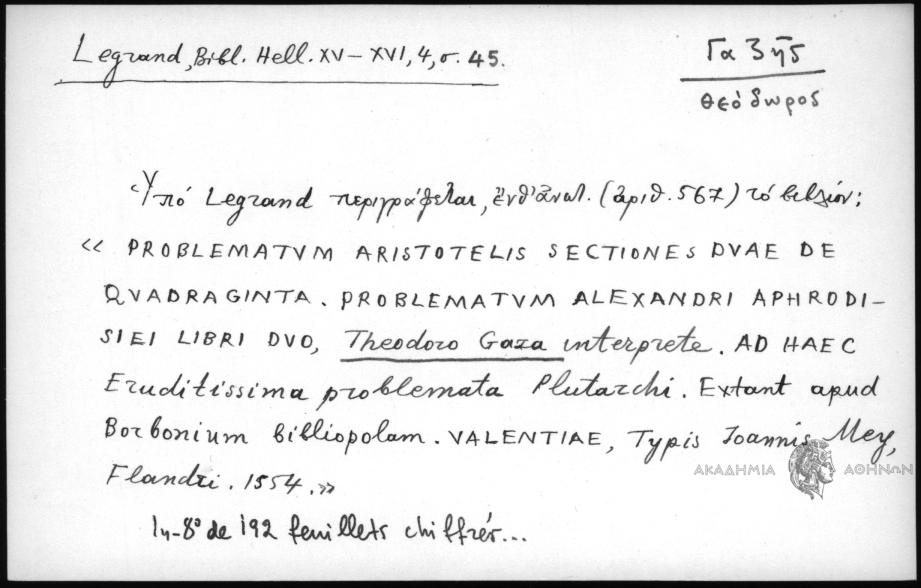 Legrand, Bibl. Hell. XV – XVI, 4, σ. 45.
Γαζῆς
Θεόδωρος
Ὑπό Legrand περιγράφεται, ἔνθ' ἀνωτ. (ἀριθ. 567) τό βιβλίον:
« PROBLEMATVM ARISTOTELIS SECTIONES DVAE DE
QVADRAGINTA. PROBLEMATVM ALEXANDRI APHRODI–
SIEI LIBRI DVO, Theodoro Gaza interprete. AD HAEC
Eruditissima problemata Plutarchi. Extant apud
Borbonium bibliopolam. VALENTIAE, Typis Joannis Mey,
Flandri. 1554.»
In-8° de 192 feuillets chiffrés...
ΑΚΑΔΗΜΙΑ ΑΘΗΝΩΝ